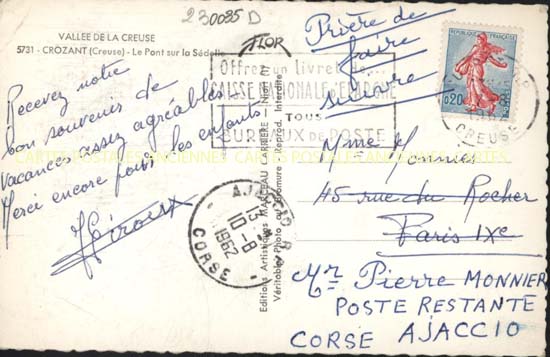 230035 D
VALLÉE DE LA CREUSE
5731 - CROZANT (Creuse) - Le Pont sur la Sédelle
FLOR
Prière de
faire
suivre
Offrez un livret de
CAISSE NATIONALE D'EPARGNE
TOUS
BUREAUX DE POSTE
REPUBLIQUE FRANÇAISE
0,20
POSTES
CREUSE
Recevez notre
bon souvenir de
Vacances assez agréables
Merci encore pour les enfants
CARTES POSTALES ANCIENNES
Editions Artistiques MARTEAU CARRIÈRE - Niort
Véritable Photo au Bromure - Reprod. Interdite
AJACCIO R.P.
10-8
1962
CORSE
Mme Monnier
45 rue du Rocher
Paris IXe
Mr Pierre MONNIER
POSTE RESTANTE
CORSE AJACCIO